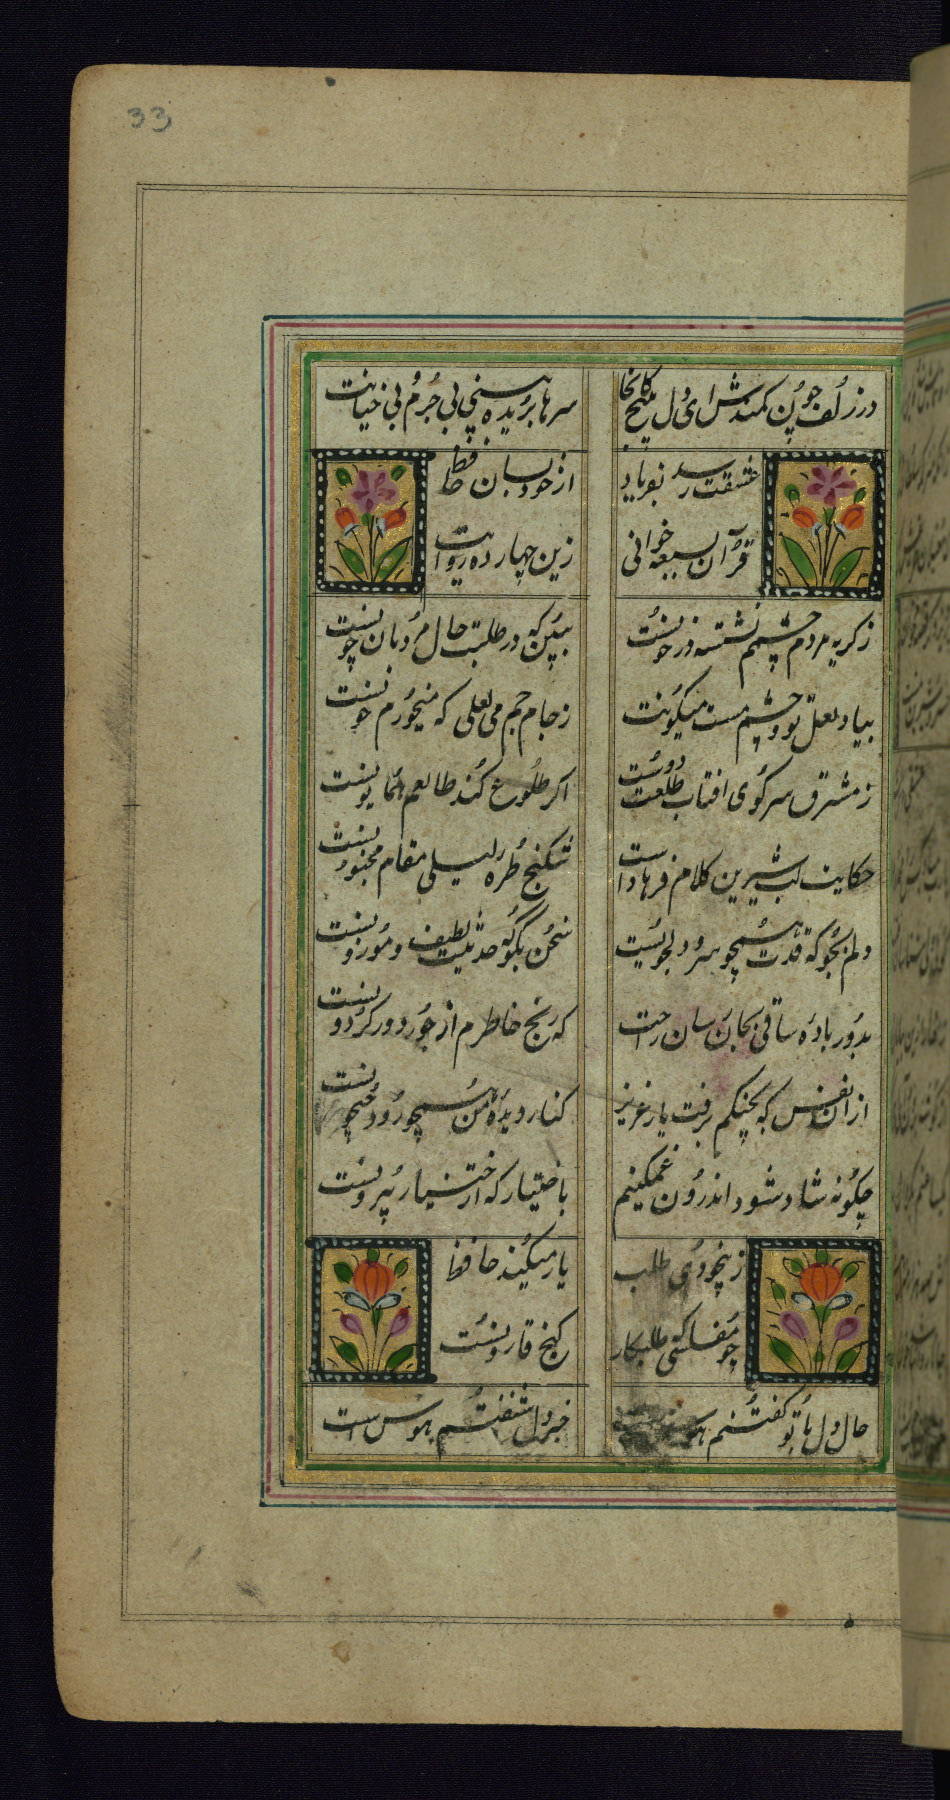 33
در زلف چون کمندش ای دل مپیچ کانجا
سرها بریده بینی بی جرم بی خیانت
عشقت رسد بفریاد
از خود بسان حافظ
قرآن بسبعه خوانی
زین چهارده روایت
ز کریه مردم چشمم نشسته در خونست
ببین که در طلبت حال مردمان چونست
بیاد لعل تو و چشم مست میکونت
ز جام جم می لعلی که میخورم خونست
ز مشرق سر کوی افتاب طلعت دوست
اکر طلوع کند طالعم همایونست
حکایت لب شیرین کلام فرهاد است
شکنج طره لیلی مقام مجنونست
دلم بجو که قدت همچو سرو دلجویست
سخن بگو که حدیثت لطیف و موزونست
بدور باده ساقی بجان رسان راحت
که رنج خاطرم از جور دور کردونست
از ان نفس که بچنکم برفت یار عزیز
کنار دیدۀ من همچو رود جیحونست
چکونه شاد شود اندرون غمکینم
باختیار که از اختیار بیرونست
ز بیخودی طلب
یار میکند حافظ
چو مفلسی طلبکار
کنج قارونست
حال دل با تو کفتنم هوس
خبر دل شنفتنم هوس است